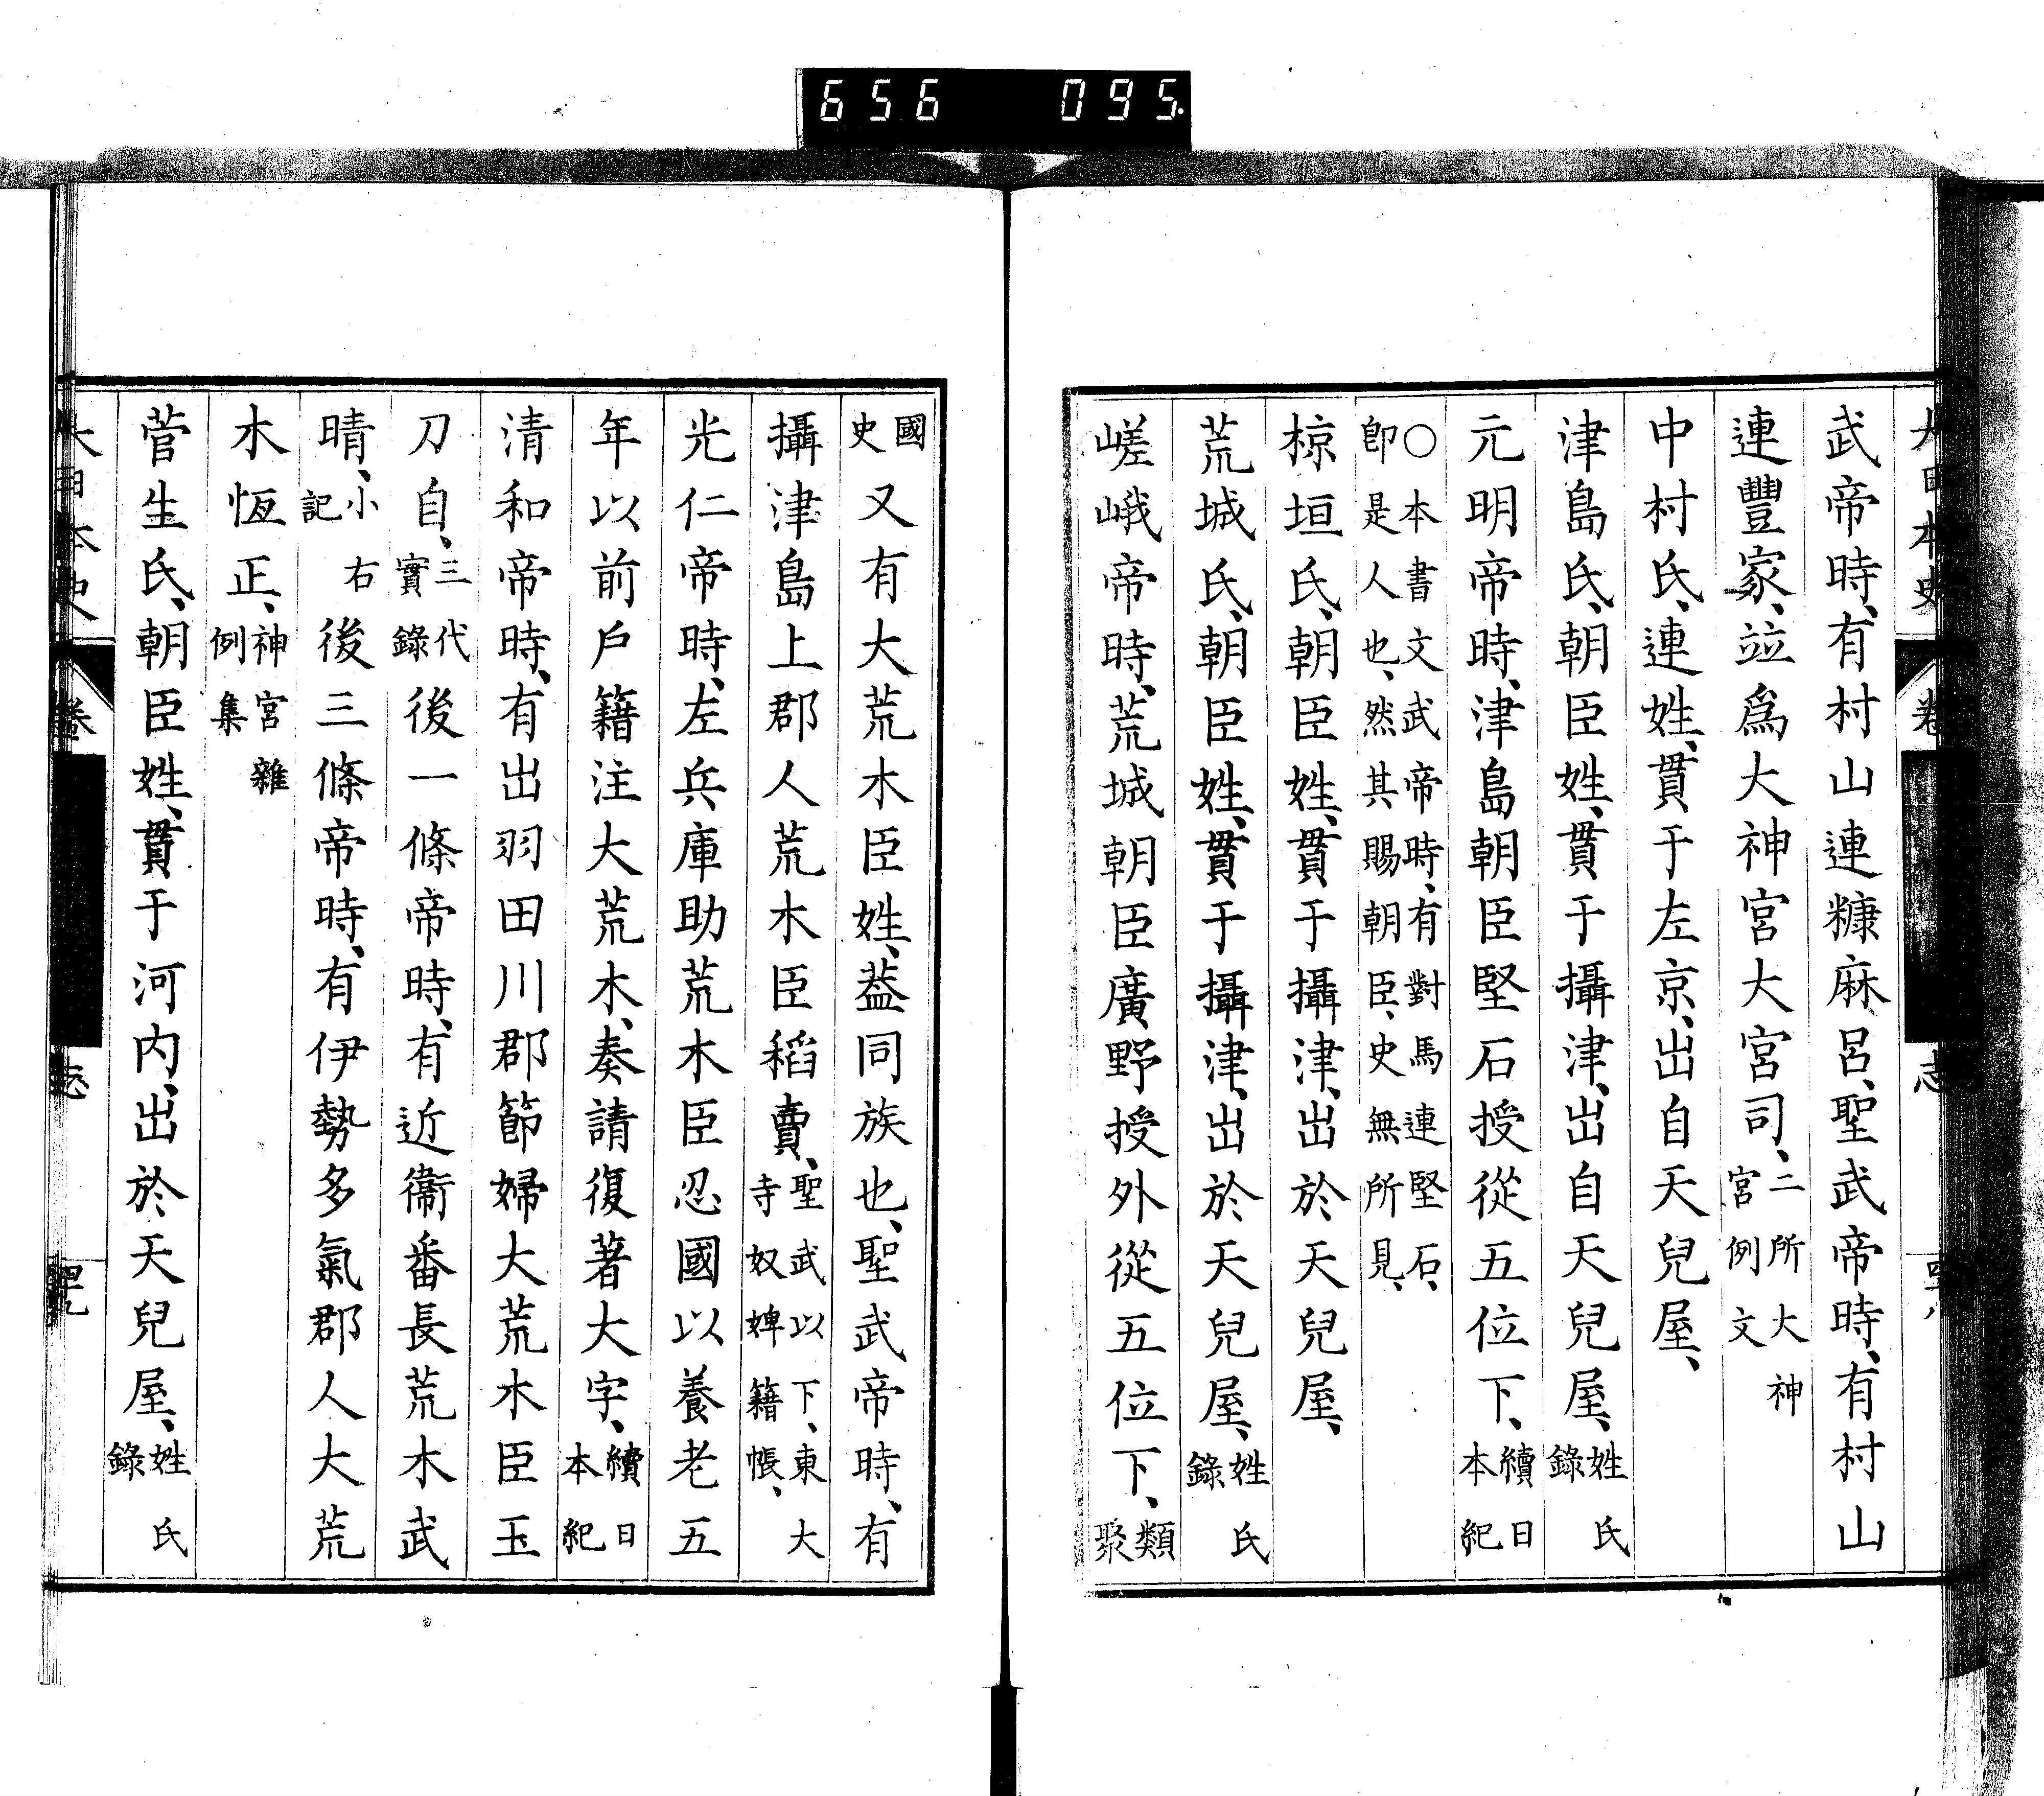 656 095
大日本史 卷 志 四十八
武帝時、有村山連糠麻呂、聖武帝時、有村山
連豐家、並爲大神宮大宮司、二所大神宮例文
中村氏、連姓、貫于左京、出自天兒屋、
津島氏、朝臣姓、貫于攝津、出自天兒屋、姓氏錄
元明帝時、津島朝臣堅石授從五位下、續日本紀
○本書文武帝時、有對馬連堅石、卽是人也、然其賜朝臣、史無所見、
椋垣氏、朝臣姓、貫于攝津、出於天兒屋、
荒城氏、朝臣姓、貫于攝津、出於天兒屋、姓氏錄
嵯峨帝時、荒城朝臣廣野授外從五位下、類聚
國史又有大荒木臣姓、葢同族也、聖武帝時、有
攝津島上郡人荒木臣稻賣、聖武以下、東大寺奴婢籍帳、
光仁帝時、左兵庫助荒木臣忍國以養老五
年以前戶籍注大荒木、奏請復著大字、續日本紀
清和帝時、有出羽田川郡節婦大荒木臣玉
刀自、三代實錄後一條帝時、有近衞番長荒木武
晴、小右記後三條帝時、有伊勢多氣郡人大荒
木恆正、神宮雜例集
菅生氏、朝臣姓、貫于河內、出於天兒屋、姓氏錄
大日本史 卷 志 四十九